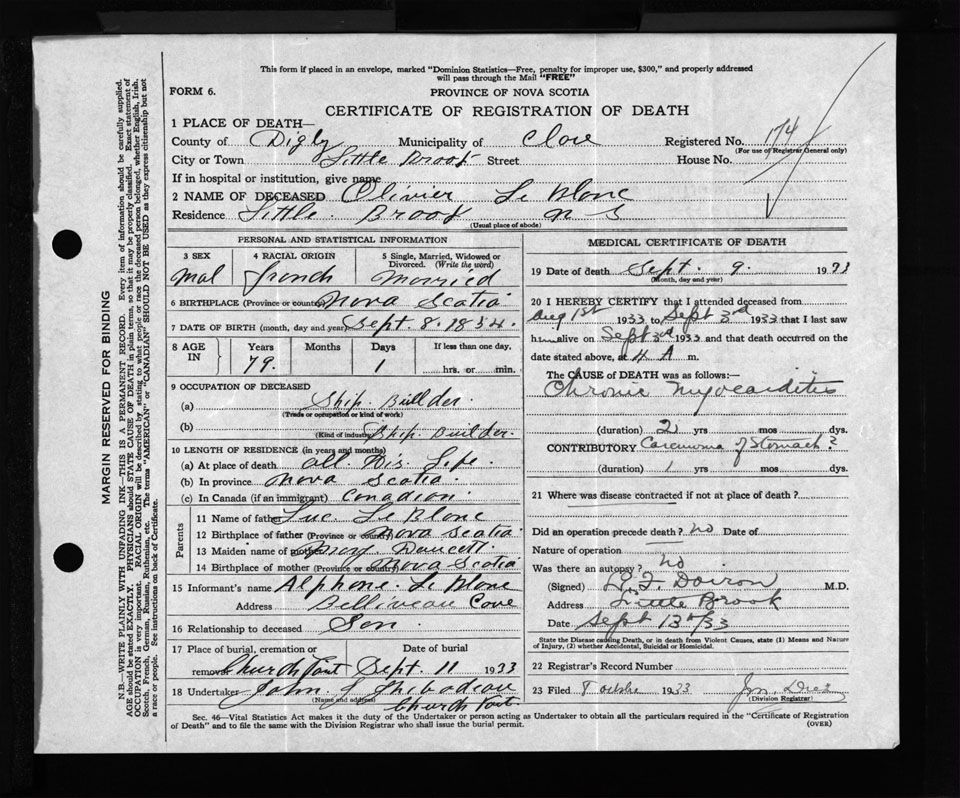 This form if placed in an envelope, marked "Dominion Statistics—Free, penalty for improper use, $300," and properly addressed
will pass through the Mail "FREE"
FORM 6.
PROVINCE OF NOVA SCOTIA
CERTIFICATE OF REGISTRATION OF DEATH
1 PLACE OF DEATH—
County of Digby Municipality of Clare Registered No. 174
(For use of Registrar General only)
City or Town Little Brook Street House No.
If in hospital or institution, give name
2 NAME OF DECEASED Olivier Le Blanc
Residence Little Brook N S
(Usual place of abode)
PERSONAL AND STATISTICAL INFORMATION
3 SEX 4 RACIAL ORIGIN 5 Single, Married, Widowed or Divorced. (Write the word)
Mal french Married
6 BIRTHPLACE (Province or country) Nova Scotia
7 DATE OF BIRTH (month, day and year) Sept. 8. 1854.
8 AGE IN Years Months Days If less than one day,
79. 1 hrs. or min.
9 OCCUPATION OF DECEASED
(a) Ship. Builder.
(Trade or occupation or kind of work)
(b) Ship Builder.
(Kind of industry)
10 LENGTH OF RESIDENCE (in years and months)
(a) At place of death all. His. Life.
(b) In province Nova Scotia.
(c) In Canada (if an immigrant) Canadian.
Parents
11 Name of father Luc Le Blanc
12 Birthplace of father (Province or country) Nova Scotia
13 Maiden name of mother Doucett.
14 Birthplace of mother (Province or country) Nova Scotia
15 Informant's name Alphone. Le Blanc
Address Belliveau Cove
16 Relationship to deceased Son.
17 Place of burial, cremation or removal Date of burial
Church Point Sept. 11 1933
18 Undertaker John J Thibodeau
(Name and address)
Church Point.
MEDICAL CERTIFICATE OF DEATH
19 Date of death Sept. 9. 1933
(Month, day and year)
20 I HEREBY CERTIFY that I attended deceased from
Aug 1st 1933 to Sept 3rd 1933 that I last saw
him alive on Sept 3rd 1933 and that death occurred on the
date stated above, at 4 A m.
The CAUSE OF DEATH was as follows:
Chronic Myocarditis
(duration) 2 yrs mos dys.
CONTRIBUTORY Carcinoma of Stomach?
(duration) 1 yrs mos. dys.
21 Where was disease contracted if not at place of death?
Did an operation precede death? No Date of
Nature of operation
Was there an autopsy? No
(Signed) Doiron M.D.
Address Little Brook
Date Sept 13th/33
State the Disease causing Death, or in death from Violent Causes, state (1) Means and Nature
of Injury, (2) whether Accidental, Suicidal or Homicidal.
22 Registrar's Record Number
23 Filed 8 octobre 1933
(Division Registrar)
Sec. 46—Vital Statistics Act makes it the duty of the Undertaker or person acting as Undertaker to obtain all the particulars required in the "Certificate of Registration
of Death" and to file the same with the Division Registrar who shall issue the burial permit.
(OVER)
MARGIN RESERVED FOR BINDING
N.B.—WRITE PLAINLY WITH UNFADING INK—THIS IS A PERMANENT RECORD. Every item of information should be carefully supplied.
AGE should be stated EXACTLY. PHYSICIANS should STATE CAUSE OF DEATH in plain terms, so that it may be properly classified. Exact statement of
OCCUPATION is very important. RACIAL ORIGIN will be described by stating to what people or race the deceased person belonged, whether English, Irish,
Scotch, French, German, Russian, Ruthenian, etc. The terms "AMERICAN" or "CANADIAN" SHOULD NOT BE USED as they express citizenship but not
a race or people. See instructions on back of Certificate.